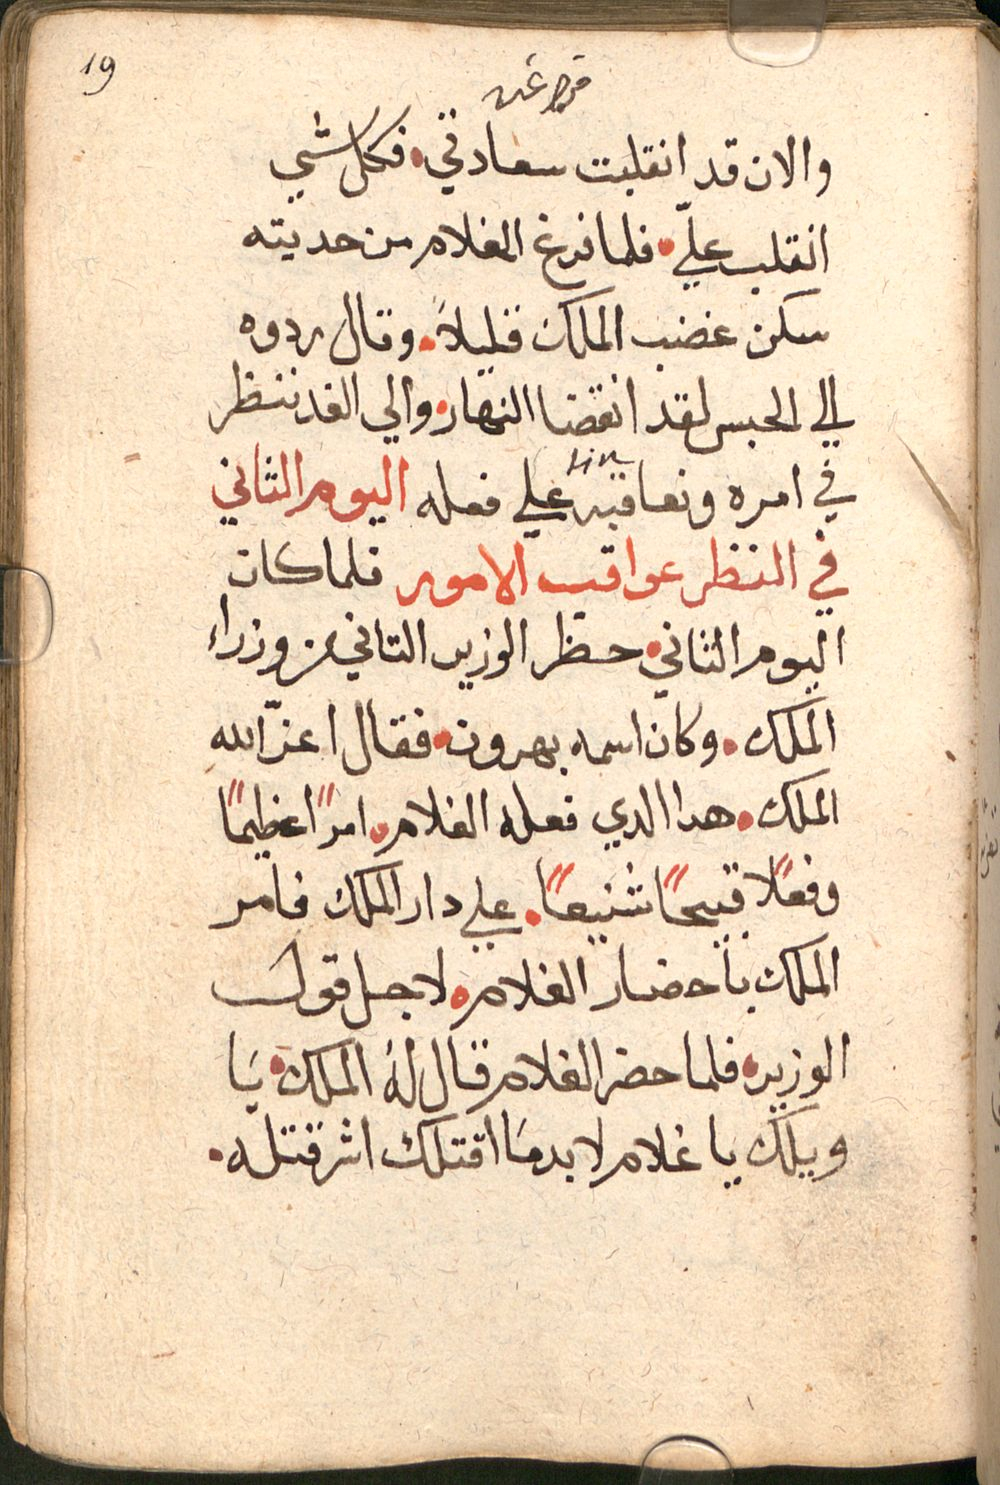 19
والان قد انقلبت سعادتي • فكل شي
انقلب عليّ • فلما فرغ الغلام من حديته
سكن غضب الملك قليلاً • وقال ردوه
الي الحبس لقد انقضا النهار • والي الغد ننظر
في امره ونعاقبه علي فعله اليوم الثاني
في النظر عواقب الامور فلما كان
اليوم الثاني • حظر الوزير التاني من وزراء
الملك • وكان اسمه بهرون • فقال اعزّ الله
الملك • هدا الدي فعله الغلام • امرًا عظيمًا
وفعلًا قبيحًا شنيعًا • علي دار الملك فامر
الملك باحضار الغلام • لاجل قول
الوزير • فلما حضر الغلام قال لهُ الملك • يَا
ويلك يا غلام لا بد مَا اقتلك اشر قتله •